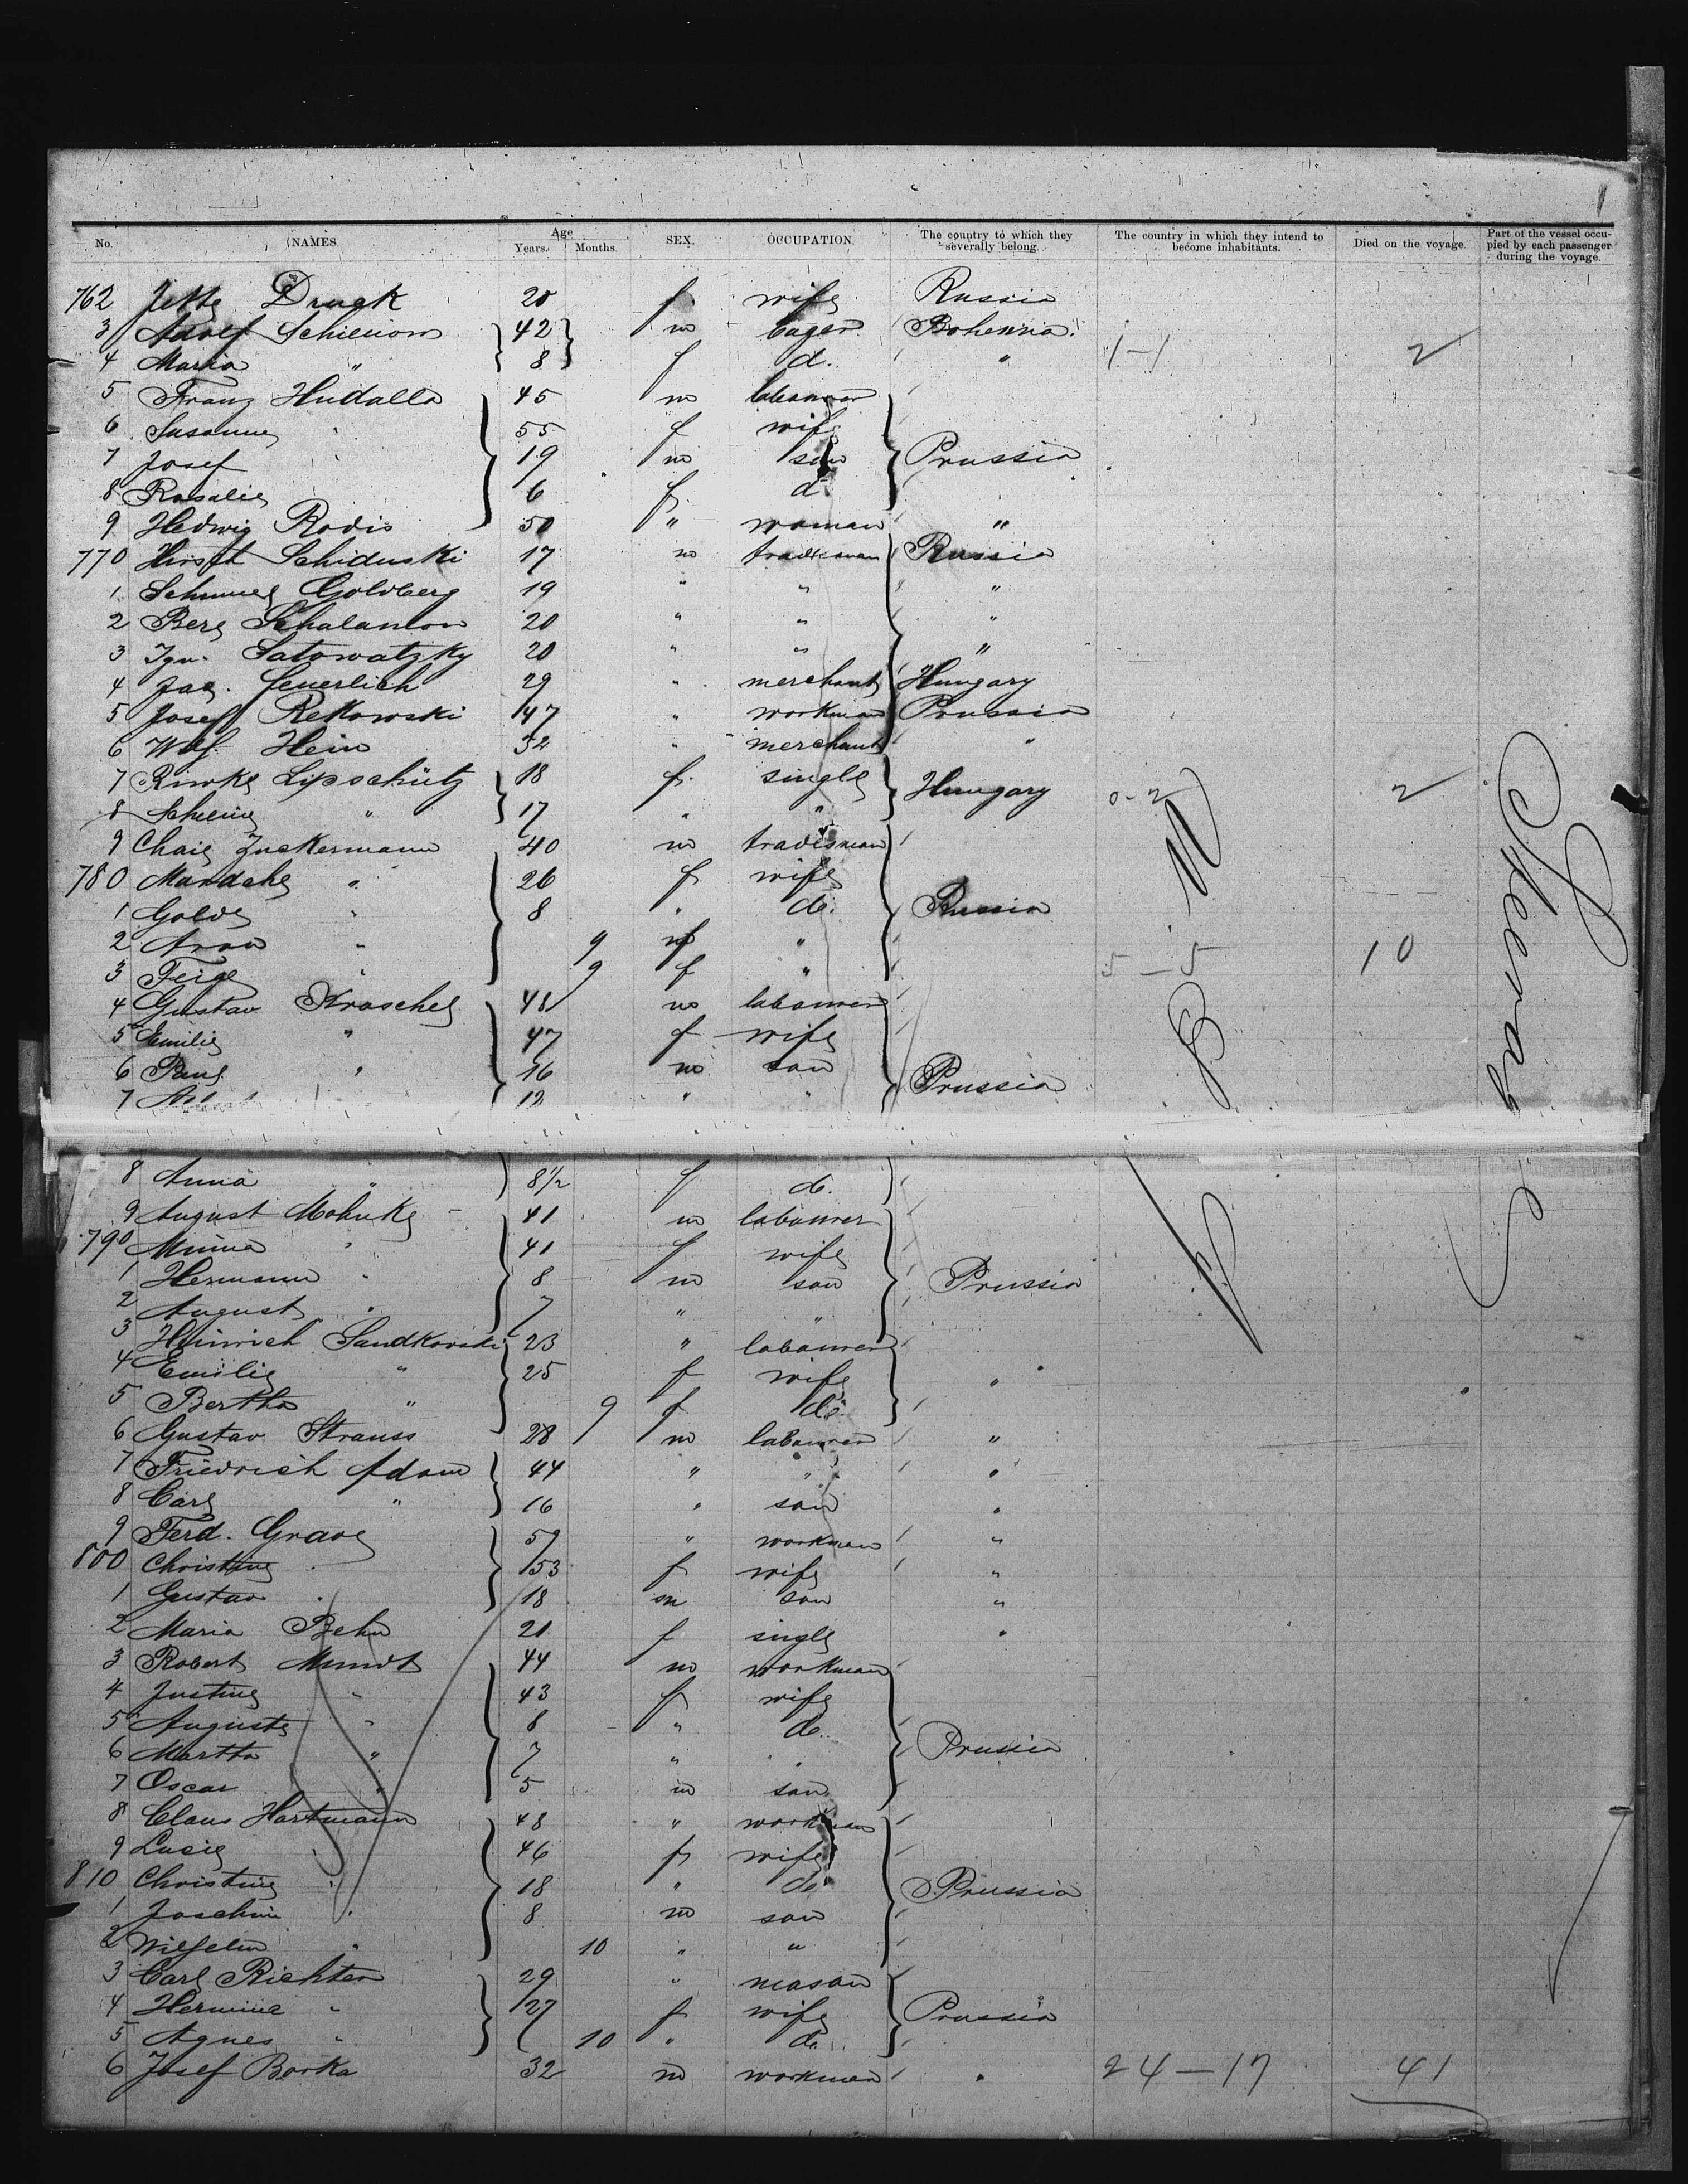 No. NAMES. Age Years. Months. SEX. OCCUPATION. The country to which they severally belong. The country in which they intend to become inhabitants. Died on the voyage. Part of the vessel occupied by each passenger during the voyage.
762 Jette Drugk 20 f. wife Russia
3 Adolf 42 m Bohemia.
4 Maria " 8 f d. " 1-1 2
5 Franz Hudalla 45 m labourer
6 Susanne " 55 f wife
7 Josef 19 m son Prussia
8 Rosalie 6 f. d.
9 Hedwig Rodis 50 " woman "
770 Hirsch Schiduski 17 m tradesman Russia
1 Schmuel Goldberg 19 " " "
2 Berl Schalamon 20 " " "
3 Ign. Satowatzky 20 " " "
4 Jac. Feuerlich 29 " merchant Hungary
5 Josef Rekowski 47 " workman Prussia
6 Wolf Hein 32 " merchant "
7 Riwke Lipschütz 18 f. single Hungary 0-2 2
8 " 17 " "
9 Chaie Zuckermann 40 m tradesman
780 " 26 f wife
1 Golde " 8 " do. Russia
2 Aron " 9 m "
3 Feige " 9 f " 5-5 10
4 Gustav Kraschel 48 m labourer
5 Emilie " 47 f wife
6 Paul " 16 m son Prussia
7 12 " "
8 Anna " 8 1/2 f do.
9 August Mohnke 41 m labourer
790 Minna " 41 f wife
1 Hermann " 8 m son Prussia
2 August " 7 " "
3 Heinrich Sandkowski 23 " labourer
4 Emilie " 25 f wife "
5 Bertha " 9 f do.
6 Gustav Strauss 28 m labourer "
7 Friedrich Adam 44 " " "
8 Carl " 16 " son "
9 Ferd. Grave 59 " workman "
800 Christine " 53 f wife "
1 Gustav " 18 m son "
2 Maria Behn 21 f single "
3 Robert Mundt 44 m workman
4 Justine " 43 f wife
5 Auguste " 8 " do.
6 Martha " 7 " " Prussia
7 Oscar " 5 m son
8 Claus Hartmann 48 " workman
9 Lucie " 46 f wife
810 Christine " 18 " do. Prussia
1 Joachim " 8 m son
2 Wilhelm " 10 " "
3 Carl Richter 29 " mason
4 Hermine " 27 f wife Prussia
5 Agnes " 10 " do.
6 Josef Borka 32 m workman " 24-17 41
Steerage